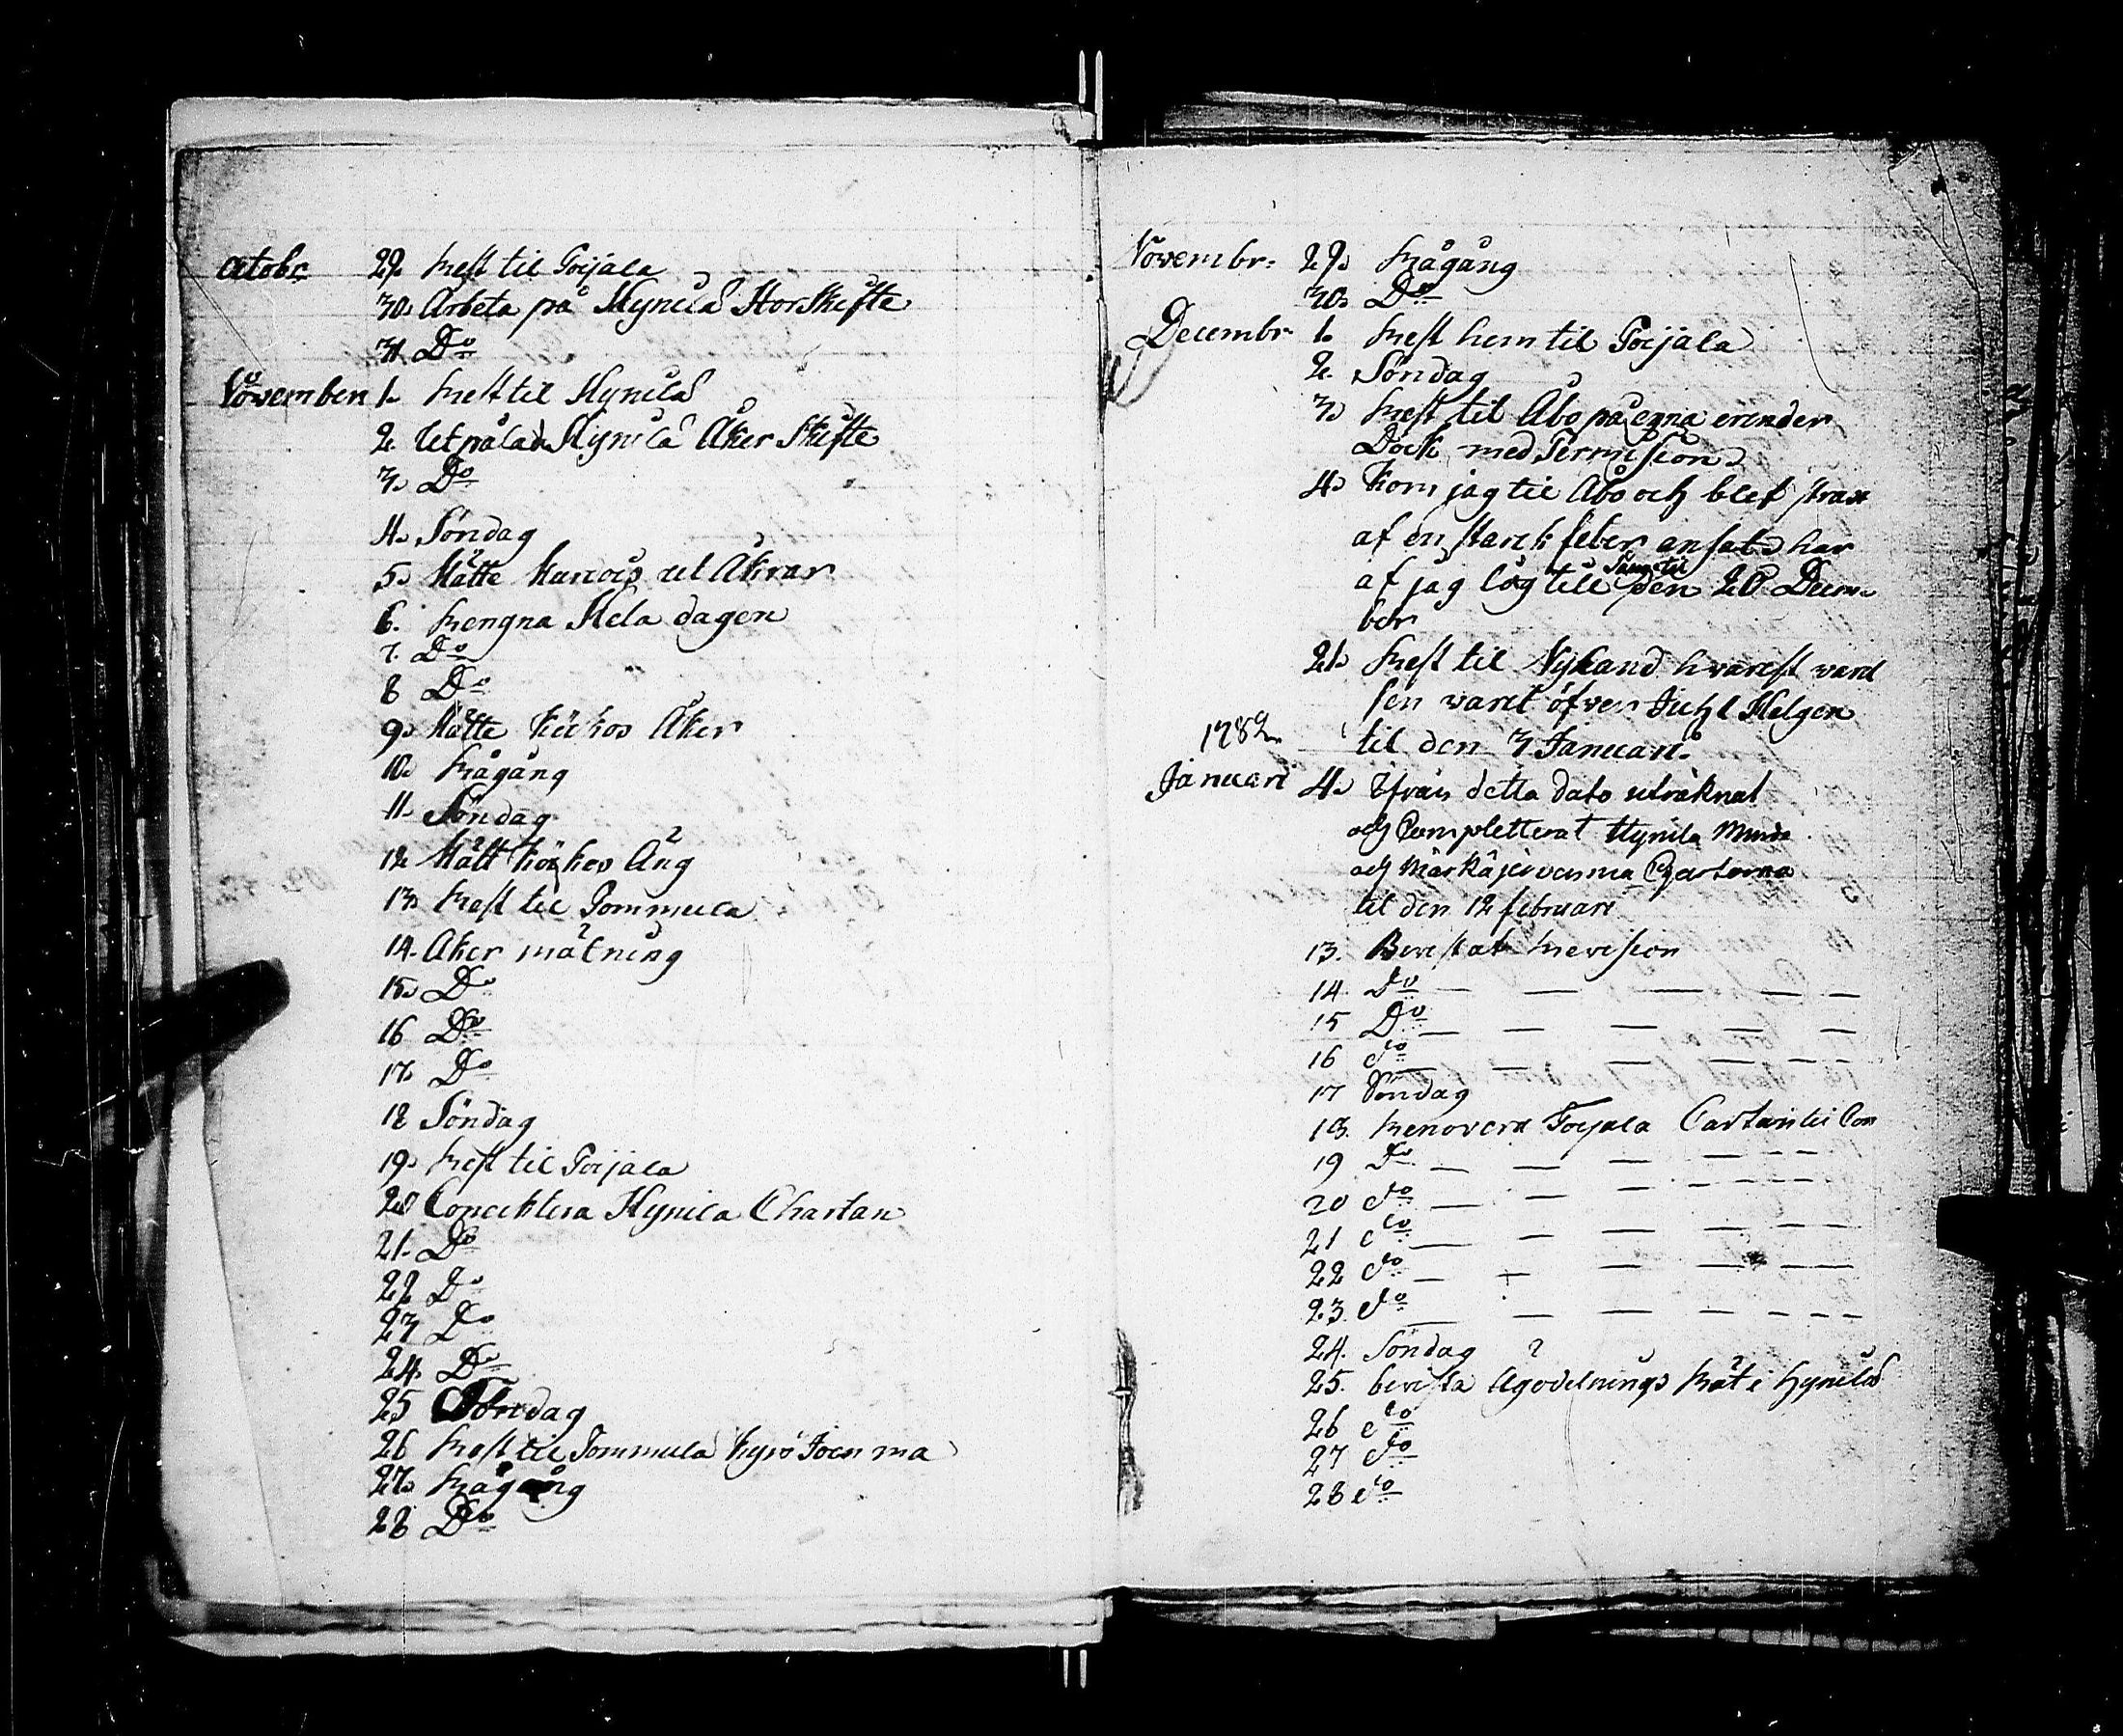 octobr 29. Rest til Toijala
30. Arbeta på Hynilä Storskifte
31 Do
November 1. Rest til Hynilä
2. Utpåla Hynilä Åker Skifte
3. Do
4. Söndag
5. Mätte Åkrar
6. Rengna Hela dagen
7. Do
8 Do
9. Mätte Köckos Åker
10. Rågång
11. Söndag
12 Mätt Köckos Äng
13. Rest til Tommula
14. Åker mätning
15. Do
16 Do
17. Do
18 Söndag
19. Rest til Toijala
20 Concektera Hynila Chartan
21. Do
22 Do
23 Do
24. Do
25 Söndag
26 Rest til Tommula Kyrö
27. Rågång
28 Do
Novembr: 29. Rågång
30. Do
Decembr 1. Rest hem til Toijala
2. Söndag
3. Rest til Åbo på egna erender
Dock med Permission
4. Kom jag til Åbo och blef strax
af en starck feber ansatt har
af jag låg till den 20 Decem
ber
21. Rest til Nyland hvarest
varit öfver Juhl Helgen
1782 til den 3 Januari.
Januari 4. Ifrån detta dato uträknat
och Completterat Hynila
och Charterna
til den 12 februari
13. Bevistat Revision
14 Do — — — — —
15 Do — — — — —
16 do — — — — — —
17 Söndag
18. Renovera Toijala Cartan
19 Do — — — — — —
20 do — — — — — —
21 do — — — — — —
22 do — — — — —
23. do — — — — — —
24. Söndag
25. bevista Ägodelnings Rät i Hynilä
26 do
27 do
28 do